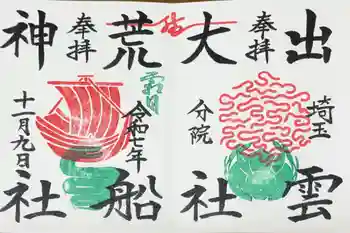 出雲
奉拝
埼玉
大社
分院
奉拝
荒船
令和七年
神社
十一月九日